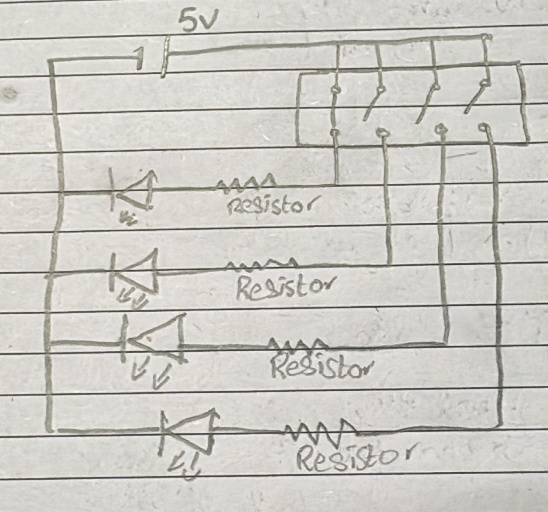 5v
Resistor
Resistor
Resistor
Resistor